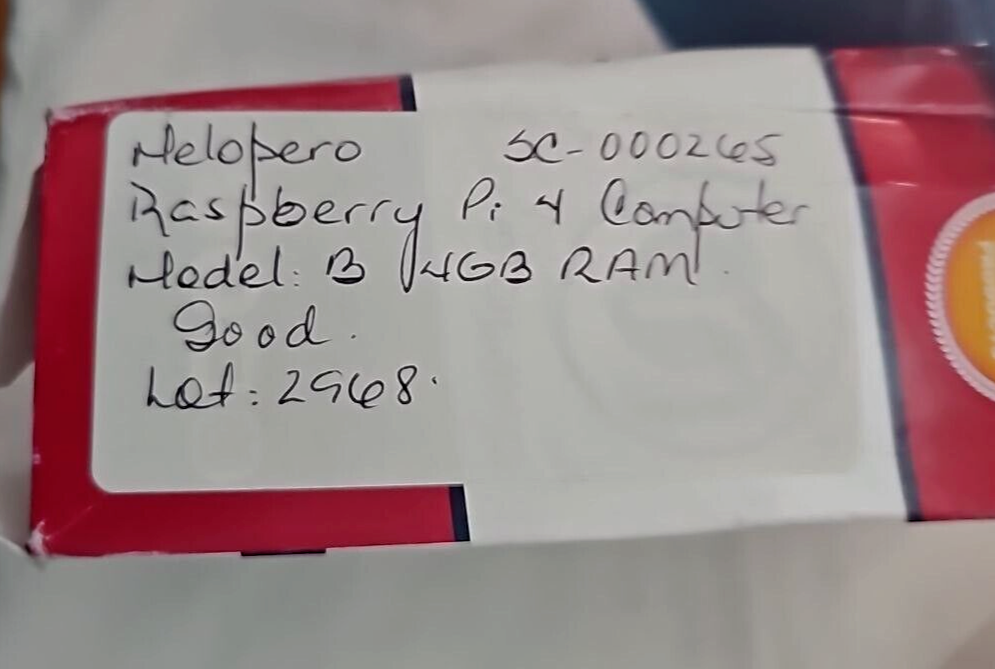 Melopero SC-000265
Raspberry Pi 4 Computer
Model: B 4GB RAM.
Good.
Lot: 2968.